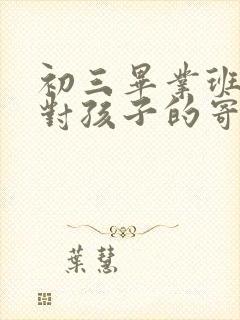 初三畢業班
對孩子的寄
葉慧